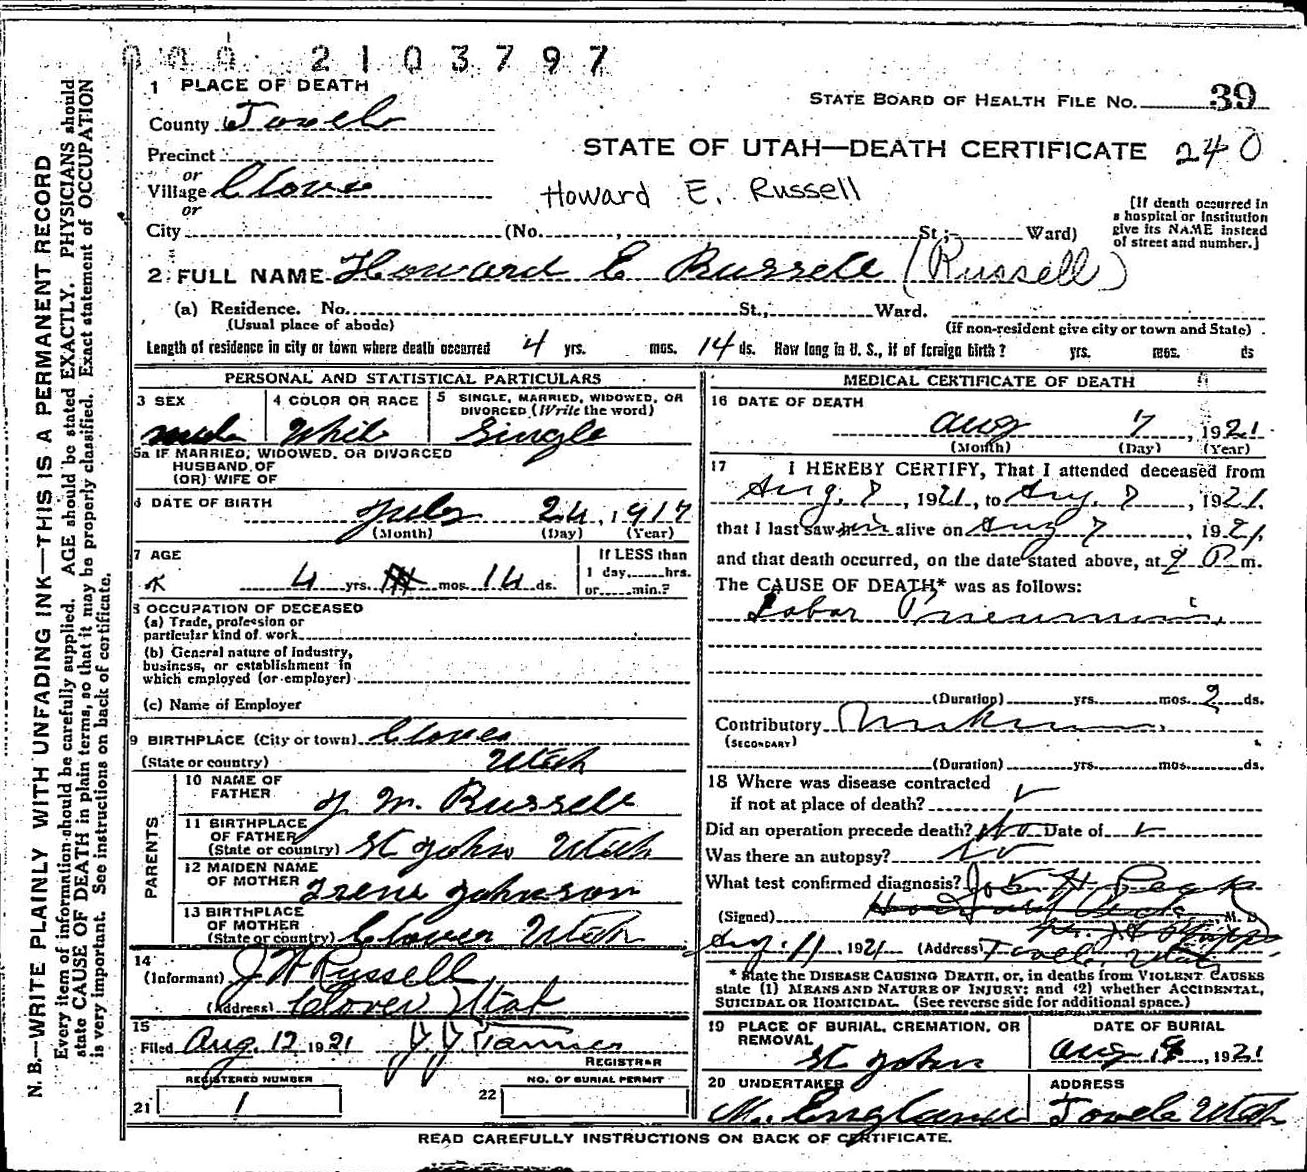 000 2103797
1 PLACE OF DEATH
STATE BOARD OF HEALTH FILE No. 39
County Tooele
STATE OF UTAH—DEATH CERTIFICATE 240
Precinct
or
Village Clover
Howard E. Russell
or
City (No. , St.; Ward)
[If death occurred in
a hospital or institution
give its NAME instead
of street and number.]
2 FULL NAME Howard E Russell (Russell)
(a) Residence. No. St., Ward.
(Usual place of abode) (If non-resident give city or town and State)
Length of residence in city or town where death occurred 4 yrs. mos. 14 ds. How long in U. S., if of foreign birth? yrs. mos. ds
PERSONAL AND STATISTICAL PARTICULARS
3 SEX 4 COLOR OR RACE 5 SINGLE, MARRIED, WIDOWED, OR
DIVORCED (Write the word)
male White Single
5a IF MARRIED, WIDOWED, OR DIVORCED
HUSBAND OF
(OR) WIFE OF
6 DATE OF BIRTH July 24, 1917
(Month) (Day) (Year)
7 AGE If LESS than
1 day,......hrs.
4 yrs. mos. 14 ds. or......min.?
8 OCCUPATION OF DECEASED
(a) Trade, profession or
particular kind of work
(b) General nature of industry,
business, or establishment in
which employed (or employer)
(c) Name of Employer
9 BIRTHPLACE (City or town) Clover
(State or country) Utah
PARENTS
10 NAME OF
FATHER J. M. Russell
11 BIRTHPLACE
OF FATHER
(State or country) St John Utah
12 MAIDEN NAME
OF MOTHER Irene Johnson
13 BIRTHPLACE
OF MOTHER
(State or country) Clover Utah
14
(Informant) J W Russell
(Address) Clover Utah
15
Filed Aug. 12 1921 J. J. Tanner
REGISTRAR
REGISTERED NUMBER NO. OF BURIAL PERMIT
21 1 22
MEDICAL CERTIFICATE OF DEATH
16 DATE OF DEATH
Aug 7, 1921
(Month) (Day) (Year)
17 I HEREBY CERTIFY, That I attended deceased from
Aug. 7, 1921, to Aug. 7, 1921.
that I last saw him alive on Aug 7, 1921,
and that death occurred, on the date stated above, at 9 P. m.
The CAUSE OF DEATH* was as follows:
Lobar Pneumonia
(Duration) yrs. mos. 2 ds.
Contributory Unknown.
(SECONDARY)
(Duration) yrs. mos. ds.
18 Where was disease contracted
if not at place of death?
Did an operation precede death? No Date of
Was there an autopsy? No
What test confirmed diagnosis?
(Signed) , M. D
Aug. 11 1921 (Address) Tooele, Utah
* State the DISEASE CAUSING DEATH, or, in deaths from VIOLENT CAUSES
state (1) MEANS AND NATURE OF INJURY; and (2) whether ACCIDENTAL,
SUICIDAL OR HOMICIDAL. (See reverse side for additional space.)
19 PLACE OF BURIAL, CREMATION, OR
REMOVAL
St John
DATE OF BURIAL
Aug 9, 1921
20 UNDERTAKER
M. England
ADDRESS
Tooele Utah
READ CAREFULLY INSTRUCTIONS ON BACK OF CERTIFICATE.
N. B.—WRITE PLAINLY WITH UNFADING INK—THIS IS A PERMANENT RECORD
Every item of information should be carefully supplied. AGE should be stated EXACTLY. PHYSICIANS should
state CAUSE OF DEATH in plain terms, so that it may be properly classified. Exact statement of OCCUPATION
is very important. See instructions on back of certificate.